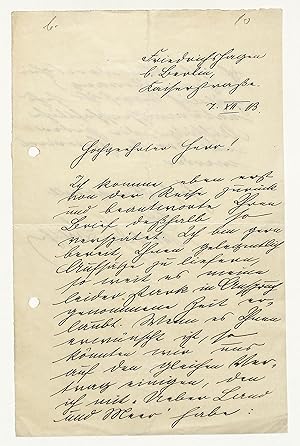 6.
Friedrichshagen
b. Berlin,
Kaiserstraße.
7. XII. 03
Hochgeehrter Herr!
Ich komme eben erst
von der Reise zurück
und beantworte Ihren
Brief deßhalb so
verspätet. Ich bin gern
bereit, Ihnen gelegentlich
Aufsätze zu liefern,
so weit es meine
leider stark in Anspruch
genommene Zeit er-
laubt. Wenn es Ihnen
erwünscht ist, so
könnten wir uns
auf den gleichen Ver-
trag einigen, den
ich mit „Ueber Land
und Meer" habe: